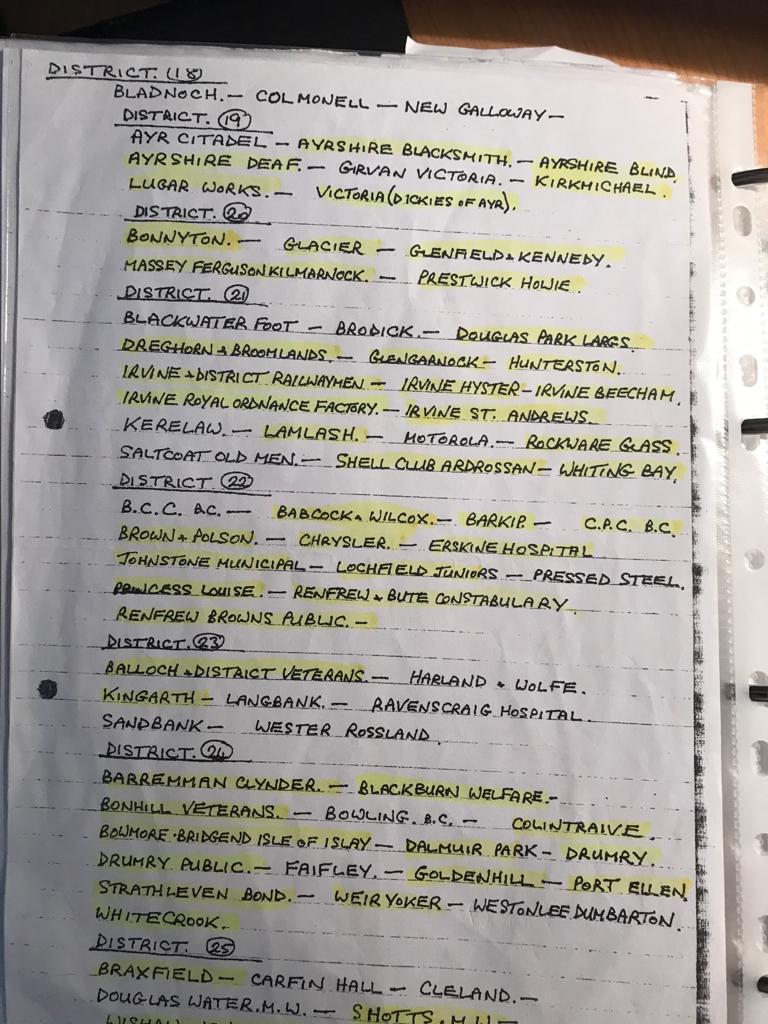 DISTRICT. (18)
BLADNOCH. — COLMONELL — NEW GALLOWAY —
DISTRICT. (19)
AYR CITADEL — AYRSHIRE BLACKSMITH. — AYRSHIRE BLIND.
AYRSHIRE DEAF. — GIRVAN VICTORIA. — KIRKMICHAEL.
LUGAR WORKS. — VICTORIA (DICKIES OF AYR).
DISTRICT. (20)
BONNYTON. — GLACIER — GLENFIELD & KENNEDY.
MASSEY FERGUSON KILMARNOCK. — PRESTWICK HOWIE.
DISTRICT. (21)
BLACKWATER FOOT — BRODICK. — DOUGLAS PARK LARGS.
DREGHORN & BROOMLANDS. — GLENGARNOCK — HUNTERSTON.
IRVINE & DISTRICT RAILWAYMEN — IRVINE HYSTER — IRVINE BEECHAM.
IRVINE ROYAL ORDNANCE FACTORY. — IRVINE ST. ANDREWS.
KERELAW. — LAMLASH. — MOTOROLA. — ROCKWARE GLASS.
SALTCOAT OLD MEN. — SHELL CLUB ARDROSSAN — WHITING BAY.
DISTRICT (22)
B.C.C. B.C. — BABCOCK & WILCOX. — BARKIP — C.P.C. B.C.
BROWN & POLSON. — CHRYSLER. — ERSKINE HOSPITAL
JOHNSTONE MUNICIPAL — LOCHFIELD JUNIORS — PRESSED STEEL.
PRINCESS LOUISE. — RENFREW & BUTE CONSTABULARY.
RENFREW BROWNS PUBLIC. —
DISTRICT. (23)
BALLOCH & DISTRICT VETERANS. — HARLAND & WOLFE.
KINGARTH — LANGBANK. — RAVENSCRAIG HOSPITAL.
SANDBANK — WESTER ROSSLAND.
DISTRICT. (24)
BARREMMAN CLYNDER. — BLACKBURN WELFARE. —
BONHILL VETERANS. — BOWLING. B.C. — COLINTRAIVE.
BOWMORE · BRIDGEND ISLE OF ISLAY — DALMUIR PARK — DRUMRY.
DRUMRY PUBLIC. — FAIFLEY. — GOLDENHILL — PORT ELLEN.
STRATHLEVEN BOND. — WEIR YOKER — WESTONLEE DUMBARTON.
WHITECROOK.
DISTRICT. (25)
BRAXFIELD — CARFIN HALL — CLELAND. —
DOUGLAS WATER. M.W. — SHOTTS. M.W —
WISHAW